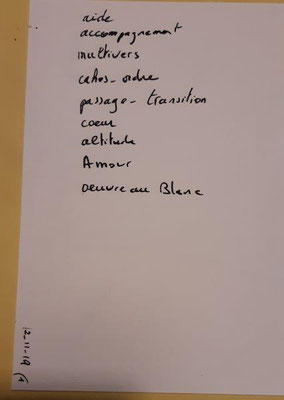 aide
accompagnement
multivers
cahos - ordre
passage - transition
coeur
altitude
Amour
oeuvre au Blanc
12-11-19